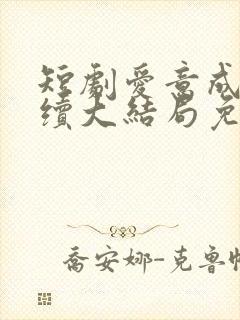 短劇愛意成
續大結局免
喬安娜-克魯